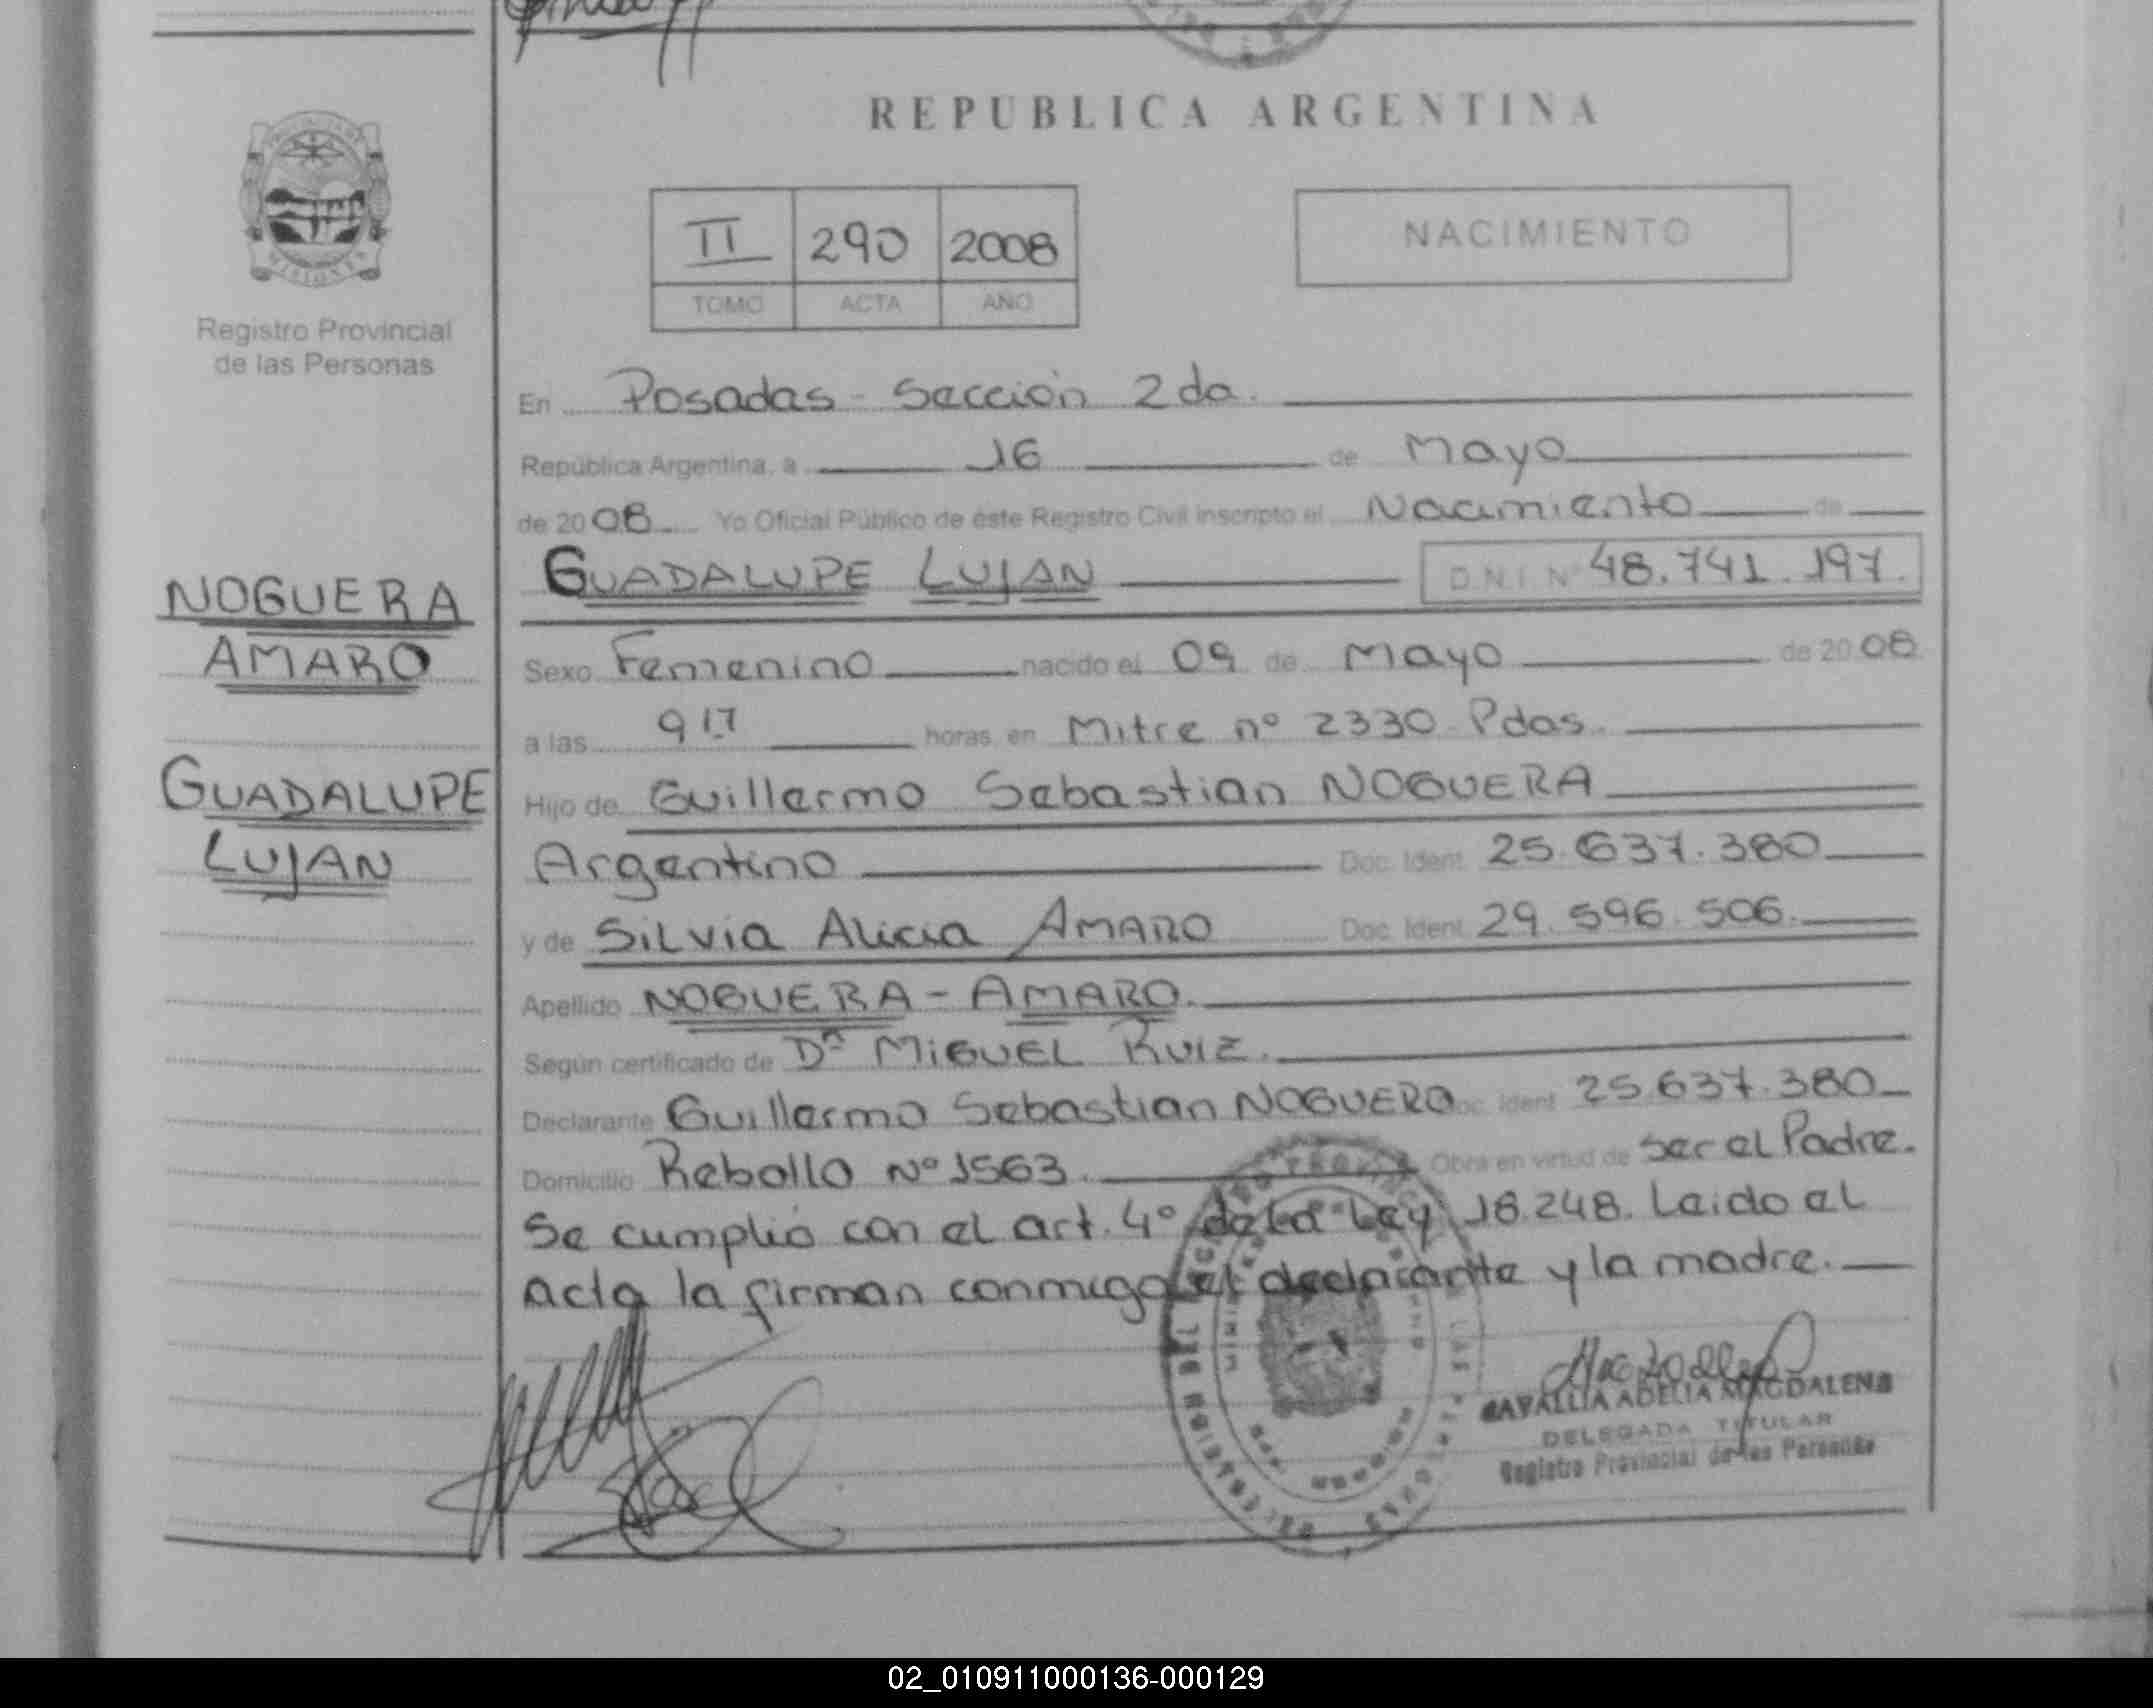 REPUBLICA ARGENTINA
II 290 2008
TOMO ACTA AÑO
NACIMIENTO
MISIONES
Registro Provincial
de las Personas
NOGUERA
AMARO
GUADALUPE
LUJAN
En Posadas - Sección 2da.
República Argentina, a 16 de Mayo
de 2008 Yo Oficial Público de éste Registro Civil inscripto el Nacimiento de
GUADALUPE LUJAN D.N.I. Nº 48.741.197.
Sexo Femenino nacido el 09 de Mayo de 2008
a las 9 17 horas en Mitre nº 2330 Pdas.
Hijo de Guillermo Sebastian NOGUERA
Argentino Doc. Ident. 25.637.380
y de Silvia Alicia AMARO Doc. Ident. 29.596.506.
Apellido NOGUERA - AMARO.
Según certificado de Dr MIGUEL RUIZ.
Declarante Guillermo Sebastian NOGUERO Doc. Ident. 25.637.380
Domicilio Rebollo Nº 1563. Obra en virtud de ser el Padre.
Se cumplió con el art. 4º de la Ley 18.248. Leido el
acta la firman conmigo el declarante y la madre.
ADELIA MAGDALENA
DELEGADA TITULAR
Registro Provincial de las Personas
02_010911000136-000129